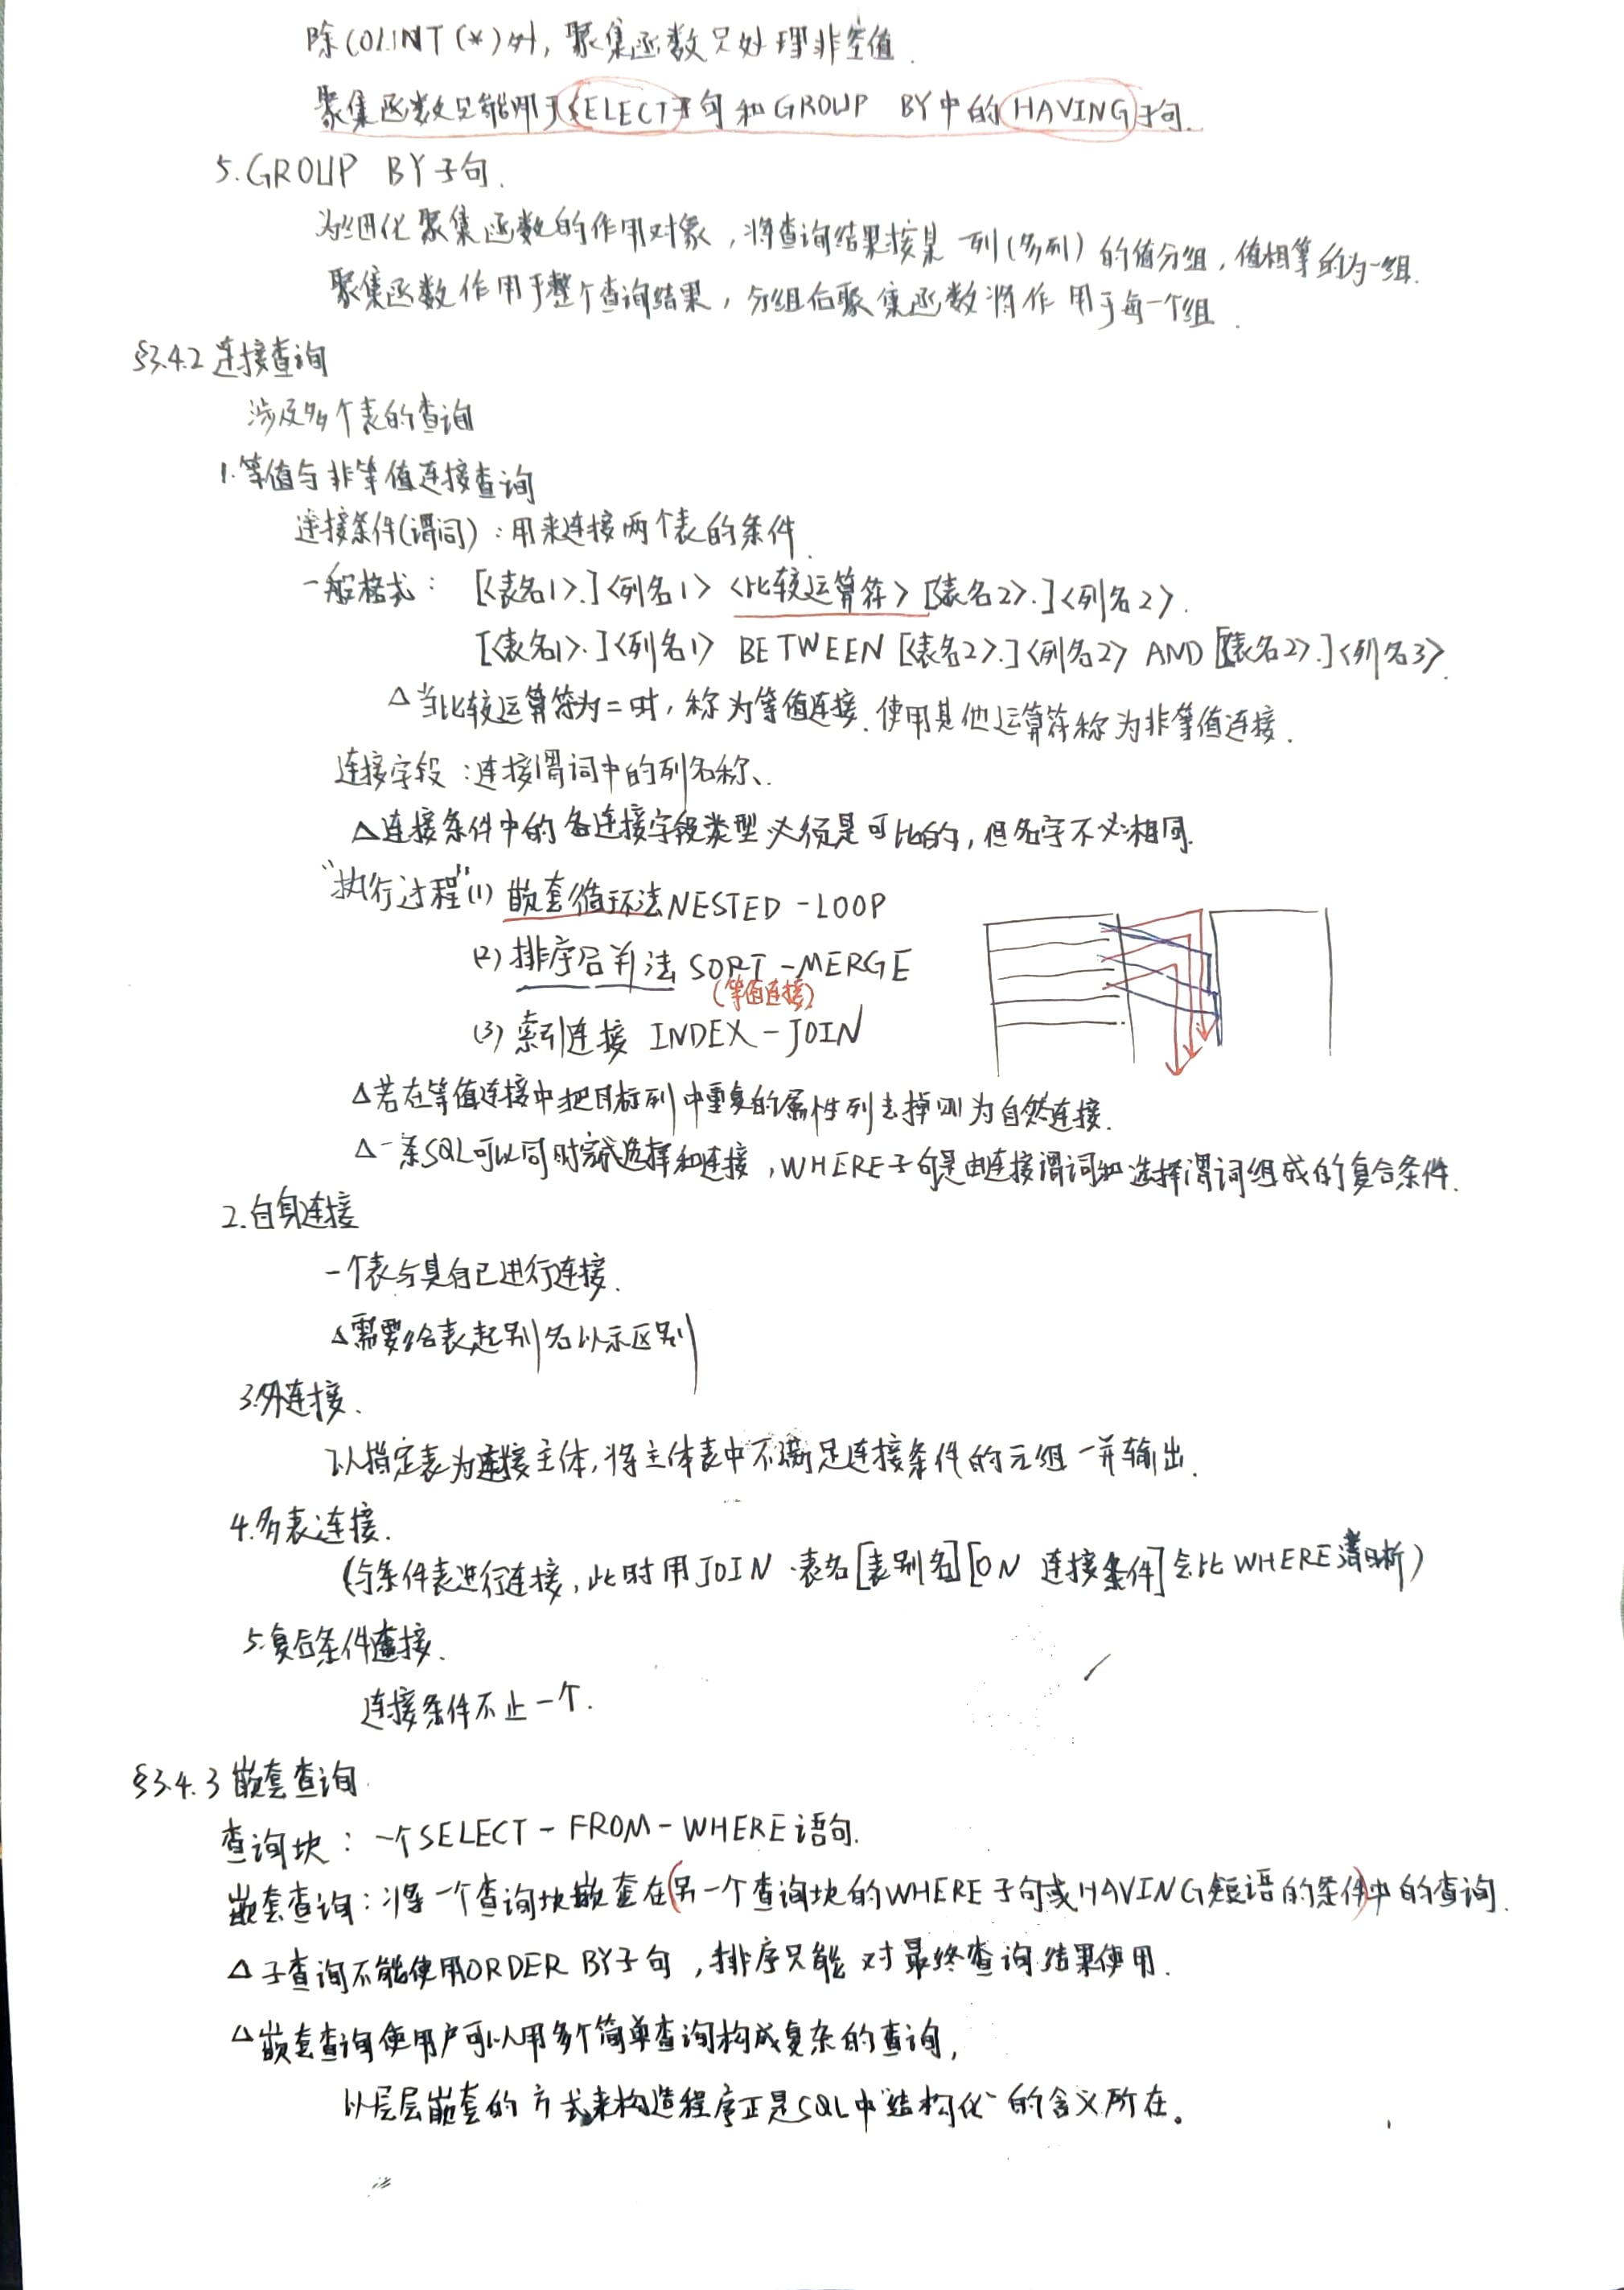 除COUNT(*)外，聚集函数只处理非空值.
聚集函数只能用于SELECT子句和GROUP BY中的HAVING子句.
5.GROUP BY子句.
为细化聚集函数的作用对象，将查询结果按某一列(多列)的值分组，值相等的为一组.
聚集函数作用于整个查询结果，分组后聚集函数将作用于每一个组.
§3.4.2 连接查询
涉及多个表的查询
1.等值与非等值连接查询
连接条件(谓词)：用来连接两个表的条件.
一般格式： [<表名1>.]<列名1> <比较运算符> [<表名2>.]<列名2>.
[<表名1>.]<列名1> BETWEEN [<表名2>.]<列名2> AND [<表名2>.]<列名3>.
△当比较运算符为=时，称为等值连接.使用其他运算符称为非等值连接.
连接字段：连接谓词中的列名称、.
△连接条件中的各连接字段类型必须是可比的，但名字不必相同.
"执行过程"(1) 嵌套循环法NESTED-LOOP
(2) 排序合并法 SORT-MERGE
(等值连接)
(3) 索引连接 INDEX-JOIN
△若在等值连接中把目标列中重复的属性列去掉则为自然连接.
△一条SQL可以同时完成选择和连接，WHERE子句是由连接谓词和选择谓词组成的复合条件.
2.自身连接
一个表与其自己进行连接.
△需要给表起别名以示区别
3.外连接.
以指定表为连接主体，将主体表中不满足连接条件的元组一并输出.
4.多表连接.
(与条件表进行连接，此时用JOIN 表名[表别名][ON 连接条件]会比WHERE清晰)
5.复合条件连接.
连接条件不止一个.
§3.4.3 嵌套查询
查询块：一个SELECT-FROM-WHERE语句.
嵌套查询：将一个查询块嵌套在(另一个查询块的WHERE子句或HAVING短语的条件)中的查询.
△子查询不能使用ORDER BY子句，排序只能对最终查询结果使用.
△嵌套查询使用户可以用多个简单查询构成复杂的查询，
以层层嵌套的方式来构造程序正是SQL中"结构化"的含义所在。